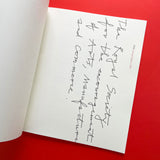 The Royal Society
for the encouragement
of Arts, Manufactures
and Commerce